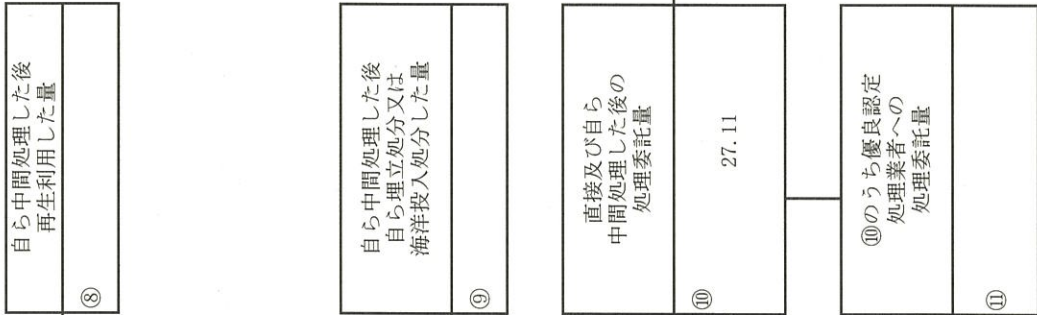 自ら中間処理した後
再生利用した量
⑧
自ら中間処理した後
自ら埋立処分又は
海洋投入処分した量
⑨
直接及び自ら
中間処理した後の
処理委託量
⑩
27.11
⑩のうち優良認定
処理業者への
処理委託量
⑪